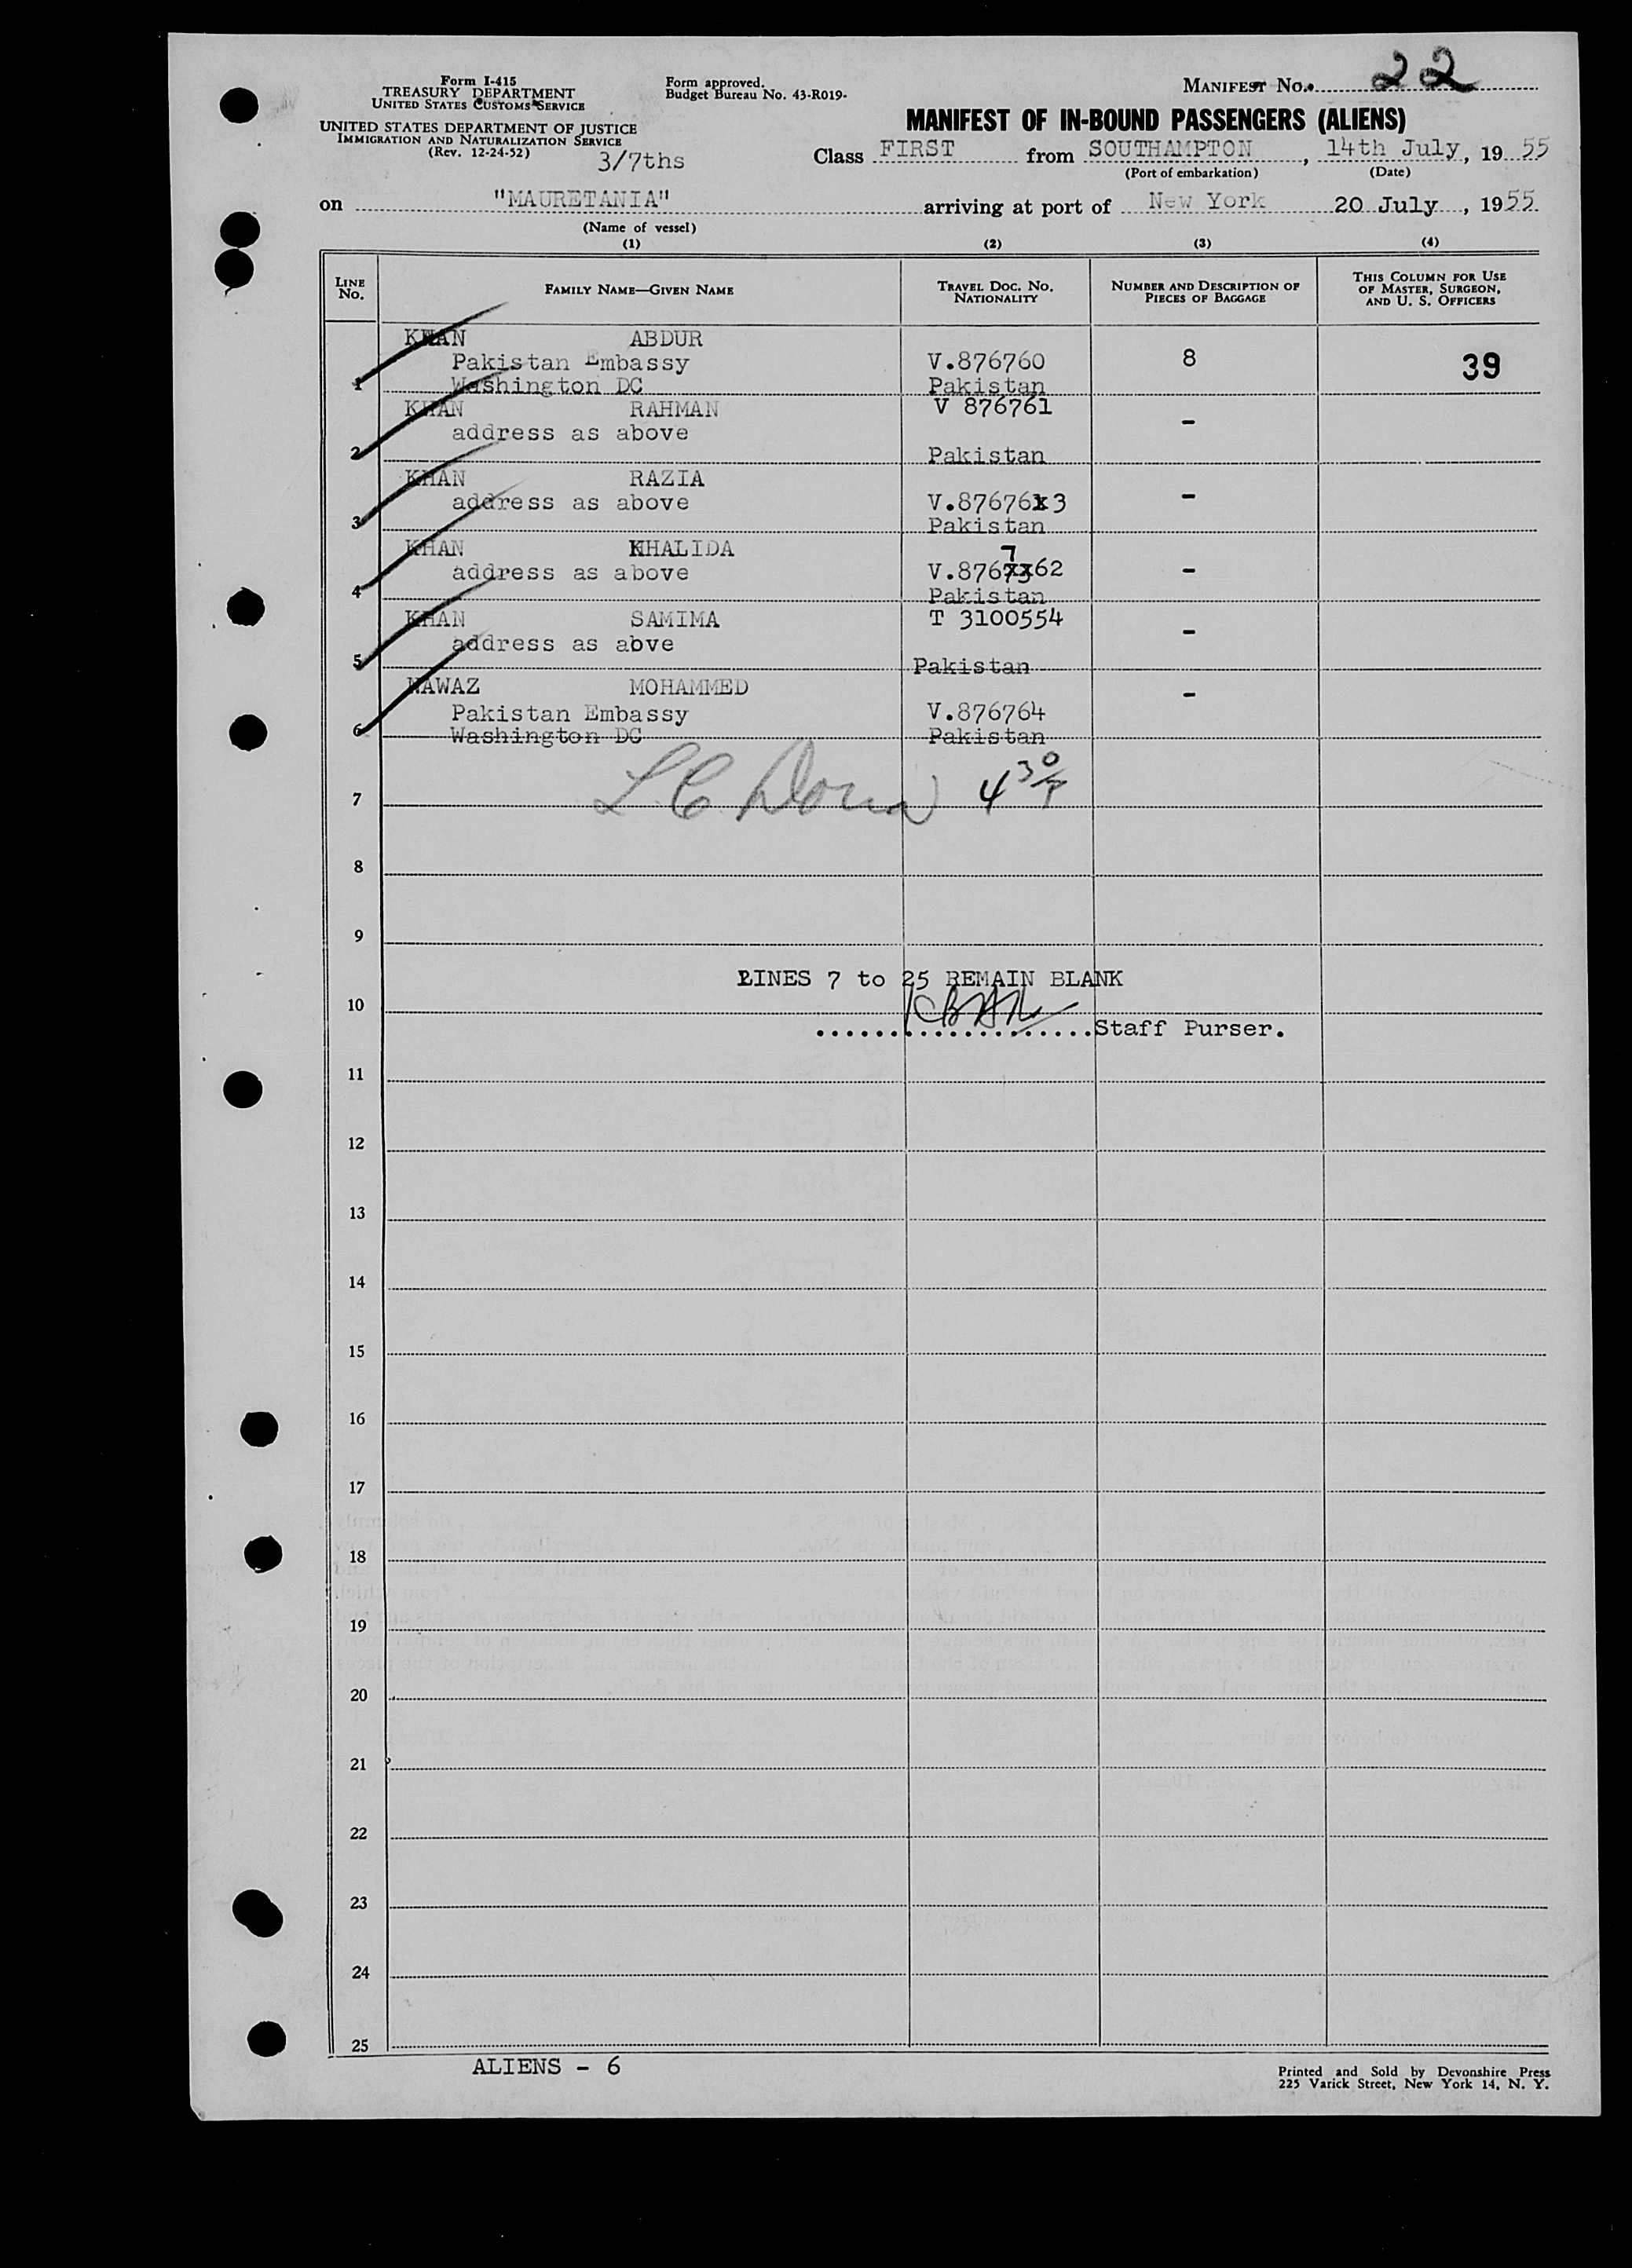 Form I-415
TREASURY DEPARTMENT
UNITED STATES CUSTOMS SERVICE
UNITED STATES DEPARTMENT OF JUSTICE
IMMIGRATION AND NATURALIZATION SERVICE
(Rev. 12-24-52)
3/7ths
Form approved.
Budget Bureau No. 43-R019-
MANIFEST No. 22
MANIFEST OF IN-BOUND PASSENGERS (ALIENS)
Class FIRST from SOUTHAMPTON, 14th July, 19 55
(Port of embarkation) (Date)
on "MAURETANIA" arriving at port of New York 20 July, 1955
(Name of vessel)
(1) (2) (3) (4)
LINE No. FAMILY NAME—GIVEN NAME TRAVEL DOC. No. NATIONALITY NUMBER AND DESCRIPTION OF PIECES OF BAGGAGE THIS COLUMN FOR USE OF MASTER, SURGEON, AND U. S. OFFICERS
KHAN ABDUR
Pakistan Embassy V.876760 8 39
1 Washington DC Pakistan
KHAN RAHMAN V 876761
address as above -
2 Pakistan
KHAN RAZIA
address as above V.87676x3 -
3 Pakistan
KHAN KHALIDA
address as above V.8767xx62 -
4 Pakistan
KHAN SAMIMA T 3100554
address as abve -
5 Pakistan
NAWAZ MOHAMMED -
Pakistan Embassy V.876764
6 Washington DC Pakistan
7 4 30
8
9
LINES 7 to 25 REMAIN BLANK
10
....................Staff Purser.
11
12
13
14
15
16
17
18
19
20
21
22
23
24
25
ALIENS - 6
Printed and Sold by Devonshire Press
225 Varick Street, New York 14, N. Y.